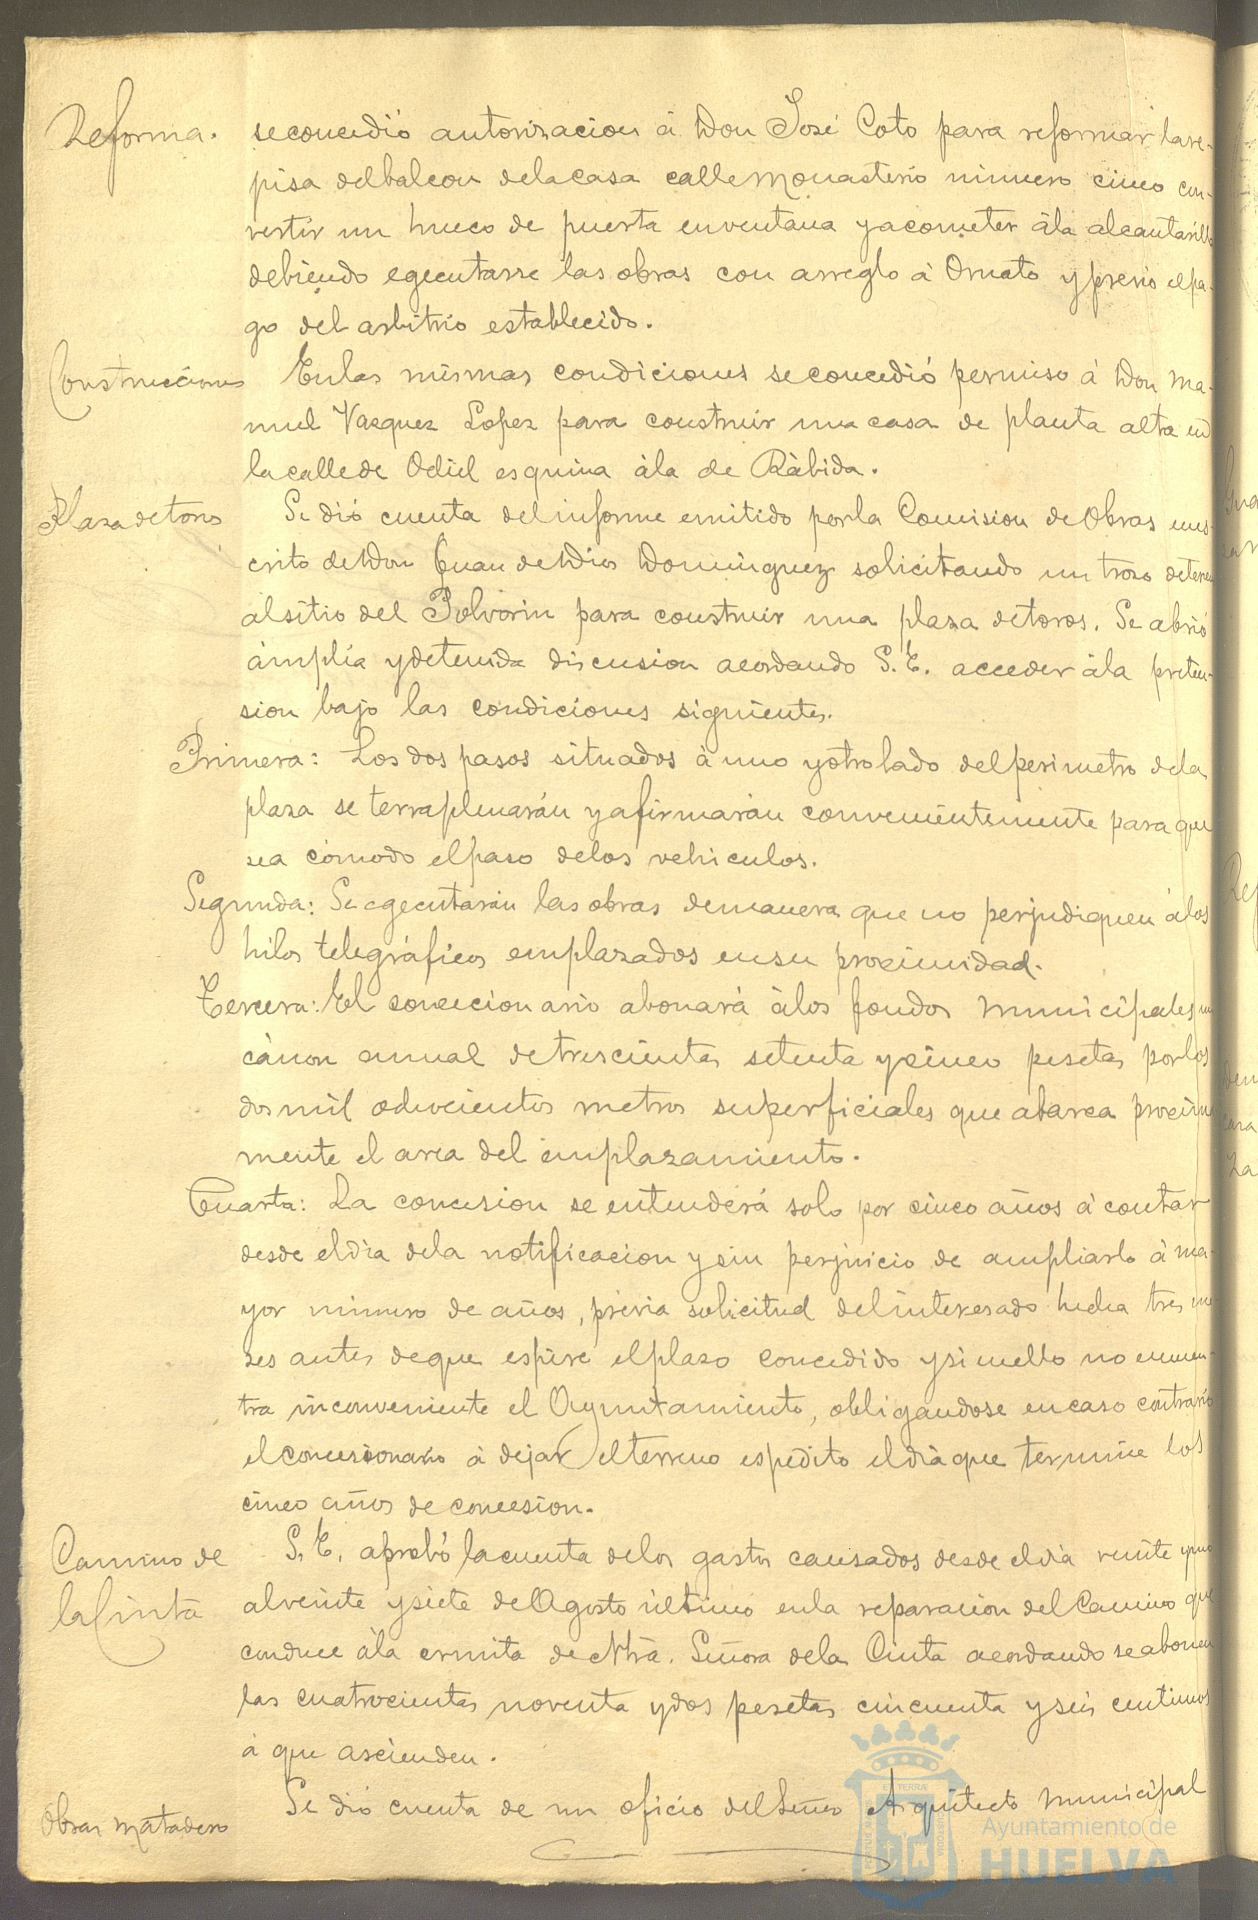 Reforma. se concedió autorizacion á Don José Coto para reformar la re-
pisa del balcon de la casa calle Monasterio número cinco con-
vertir un hueco de puerta en ventana y acometer á la alcantarilla
debiendo egecutarse las obras con arreglo á Ornato y prévio el pa-
go del arbitrio establecido.
Construcciones En las mismas condiciones se concedió permiso á Don Ma-
nuel Vazquez Lopez para construir una casa de planta alta en
la calle de Odiel esquina á la de Rábida.
Plaza de toros Se dió cuenta del informe emitido por la Comision de Obras en es-
crito de Don Juan de Dios Dominguez solicitando un trozo de terreno
al sitio del Polvorin para construir una plaza de toros. Se abrió
ámplia y detenida discusion acordando S. E. acceder á la preten-
sion bajo las condiciones siguientes.
Primera: Los dos pasos situados á uno y otro lado del perimetro de la
plaza se terraplenarán y afirmarán convenientemente para que
sea cómodo el paso de los vehiculos.
Segunda: Se egecutarán las obras de manera que no perjudiquen á los
hilos telegráficos emplazados en su proximidad.
Tercera: El concecionario abonará á los fondos municipales un
cánon anual de trescientas setenta y cinco pesetas por los
dos mil ochocientos metros superficiales que abarca proxima
mente el area del emplazamiento.
Cuarta: La concesion se entenderá solo por cinco años á contar
desde el dia de la notificacion y sin perjuicio de ampliarlo á ma-
yor número de años, prévia solicitud del interesado hecha tres me
ses antes de que espire el plazo concedido y si en ello no encuen-
tra inconveniente el Ayuntamiento, obligandose en caso contrario
el concesionario á dejar el terreno espedito el dia que termine los
cinco años de concesion.
Camino de S. E. aprobó la cuenta de los gastos causados desde el dia veinte y uno
la Cinta al veinte y siete de Agosto último en la reparacion del Camino que
conduce á la ermita de Ntrã. Señora de la Cinta acordando se abonen
las cuatrocientas noventa y dos pesetas cincuenta y seis centimos
á que ascienden.
Obras matadero Se dió cuenta de un oficio del Señor Arquitecto Municipal
Ayuntamiento de
HUELVA